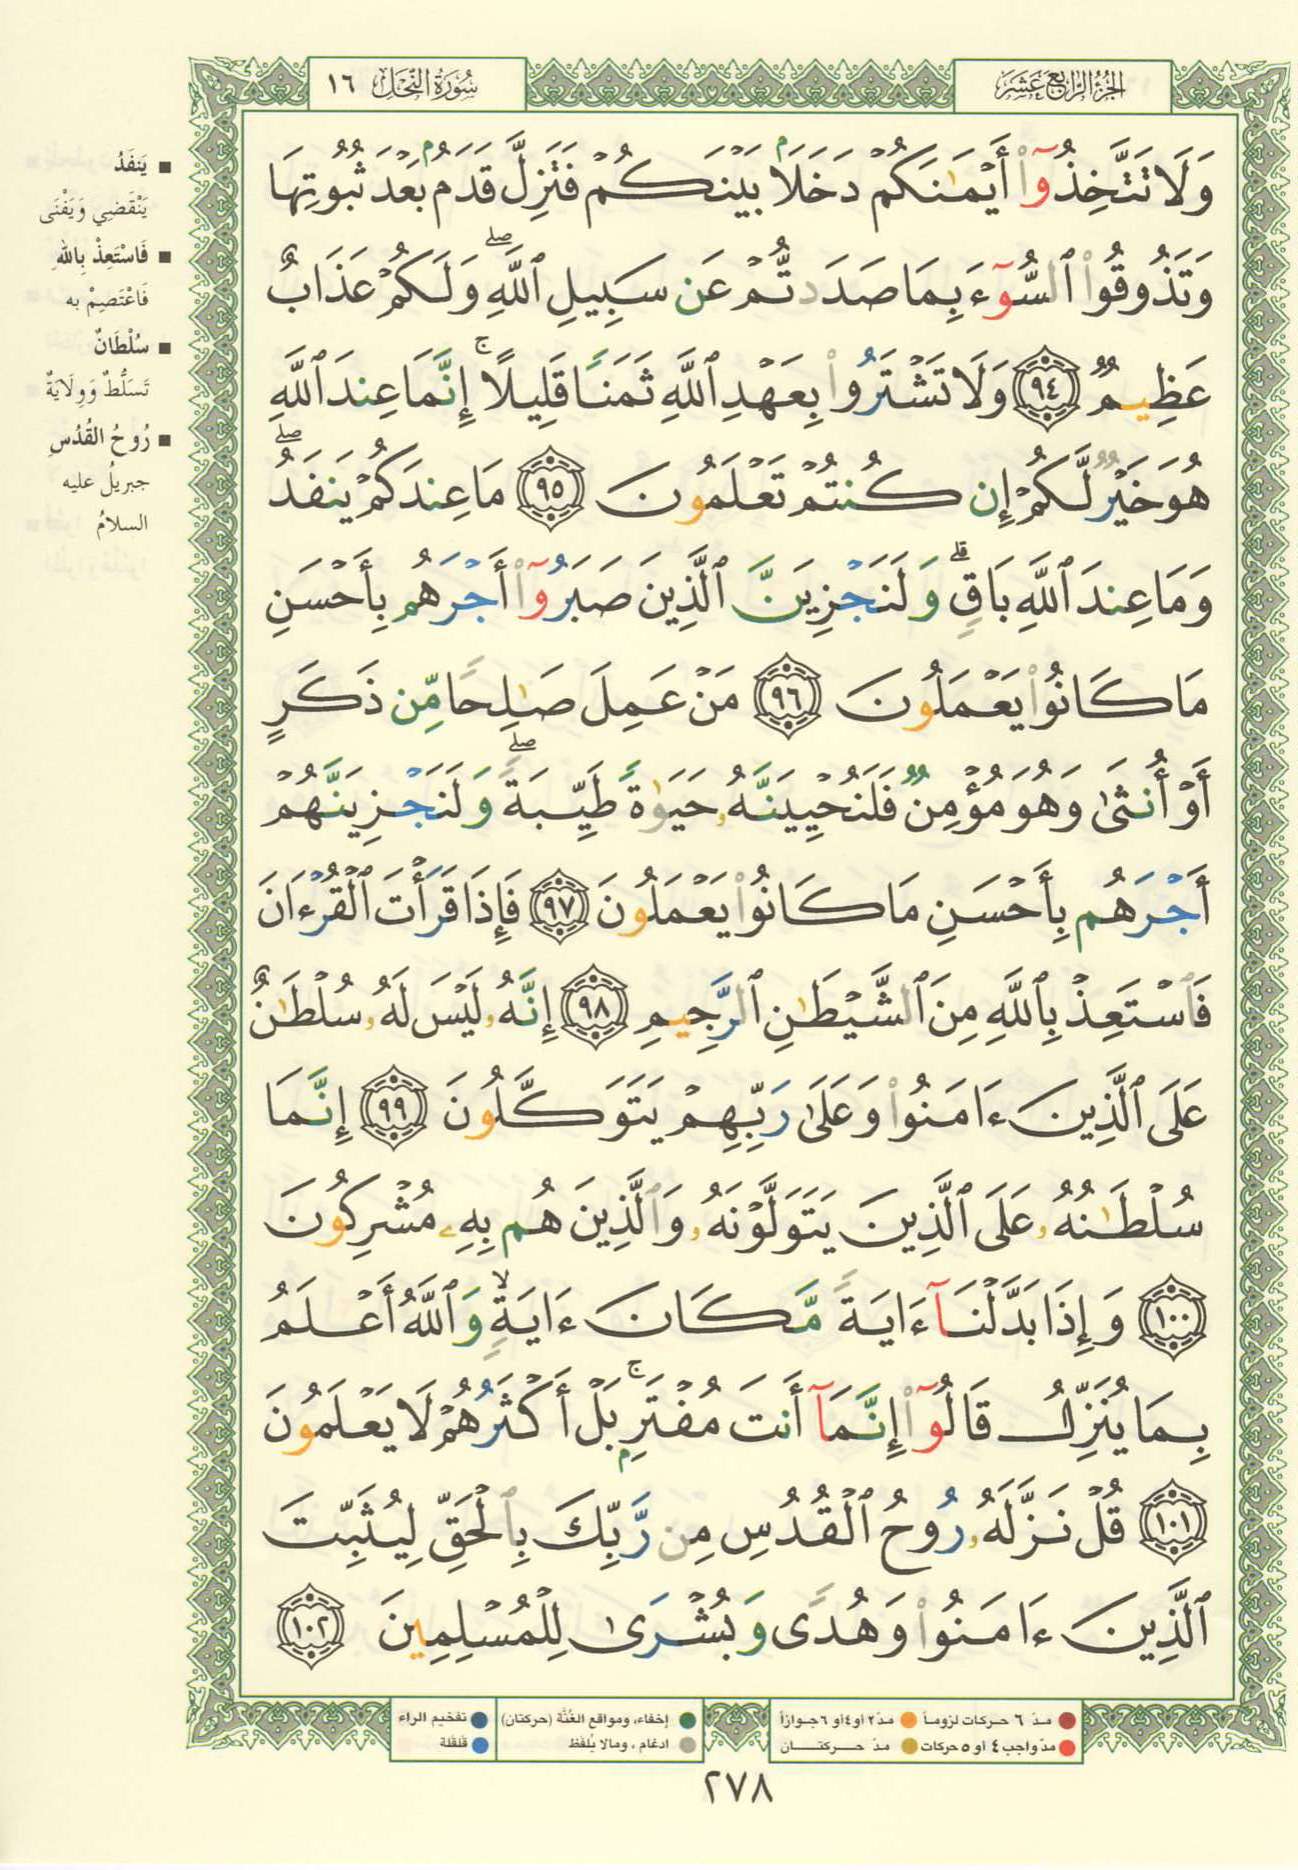 الجزء الرابع عشر
سورة النحل ١٦
وَلَا تَتَّخِذُوٓا۟ أَيْمَـٰنَكُمْ دَخَلًۢا بَيْنَكُمْ فَتَزِلَّ قَدَمٌۢ بَعْدَ ثُبُوتِهَا
وَتَذُوقُوا۟ ٱلسُّوٓءَ بِمَا صَدَدتُّمْ عَن سَبِيلِ ٱللَّهِ ۖ وَلَكُمْ عَذَابٌ
عَظِيمٌ ٩٤ وَلَا تَشْتَرُوا۟ بِعَهْدِ ٱللَّهِ ثَمَنًا قَلِيلًا ۚ إِنَّمَا عِندَ ٱللَّهِ
هُوَ خَيْرٌ لَّكُمْ إِن كُنتُمْ تَعْلَمُونَ ٩٥ مَا عِندَكُمْ يَنفَدُ ۖ
وَمَا عِندَ ٱللَّهِ بَاقٍ ۗ وَلَنَجْزِيَنَّ ٱلَّذِينَ صَبَرُوٓا۟ أَجْرَهُم بِأَحْسَنِ
مَا كَانُوا۟ يَعْمَلُونَ ٩٦ مَنْ عَمِلَ صَـٰلِحًا مِّن ذَكَرٍ
أَوْ أُنثَىٰ وَهُوَ مُؤْمِنٌ فَلَنُحْيِيَنَّهُۥ حَيَوٰةً طَيِّبَةً ۖ وَلَنَجْزِيَنَّهُمْ
أَجْرَهُم بِأَحْسَنِ مَا كَانُوا۟ يَعْمَلُونَ ٩٧ فَإِذَا قَرَأْتَ ٱلْقُرْءَانَ
فَٱسْتَعِذْ بِٱللَّهِ مِنَ ٱلشَّيْطَـٰنِ ٱلرَّجِيمِ ٩٨ إِنَّهُۥ لَيْسَ لَهُۥ سُلْطَـٰنٌ
عَلَى ٱلَّذِينَ ءَامَنُوا۟ وَعَلَىٰ رَبِّهِمْ يَتَوَكَّلُونَ ٩٩ إِنَّمَا
سُلْطَـٰنُهُۥ عَلَى ٱلَّذِينَ يَتَوَلَّوْنَهُۥ وَٱلَّذِينَ هُم بِهِۦ مُشْرِكُونَ
١٠٠ وَإِذَا بَدَّلْنَآ ءَايَةً مَّكَانَ ءَايَةٍ ۙ وَٱللَّهُ أَعْلَمُ
بِمَا يُنَزِّلُ قَالُوٓا۟ إِنَّمَآ أَنتَ مُفْتَرٍۭ ۚ بَلْ أَكْثَرُهُمْ لَا يَعْلَمُونَ
١٠١ قُلْ نَزَّلَهُۥ رُوحُ ٱلْقُدُسِ مِن رَّبِّكَ بِٱلْحَقِّ لِيُثَبِّتَ
ٱلَّذِينَ ءَامَنُوا۟ وَهُدًى وَبُشْرَىٰ لِلْمُسْلِمِينَ ١٠٢
■ يَنفَدُ
يَنْقَضِي وَيَفْنَى
■ فَاسْتَعِذْ بِاللهِ
فَاعْتَصِمْ به
■ سُلْطَانٌ
تَسَلُّطٌ وَوِلَايَةٌ
■ رُوحُ القُدُسِ
جبريلُ عليه
السلامُ
مدّ ٦ حركات لزوماً
مدّ ٢ أو ٤ أو ٦ جوازاً
مدّ واجب ٤ أو ٥ حركات
مدّ حركتان
إخفاء، ومواقع الغُنَّة (حركتان)
ادغام، ومالا يُلفَظ
تفخيم الراء
قلقلة
٢٧٨